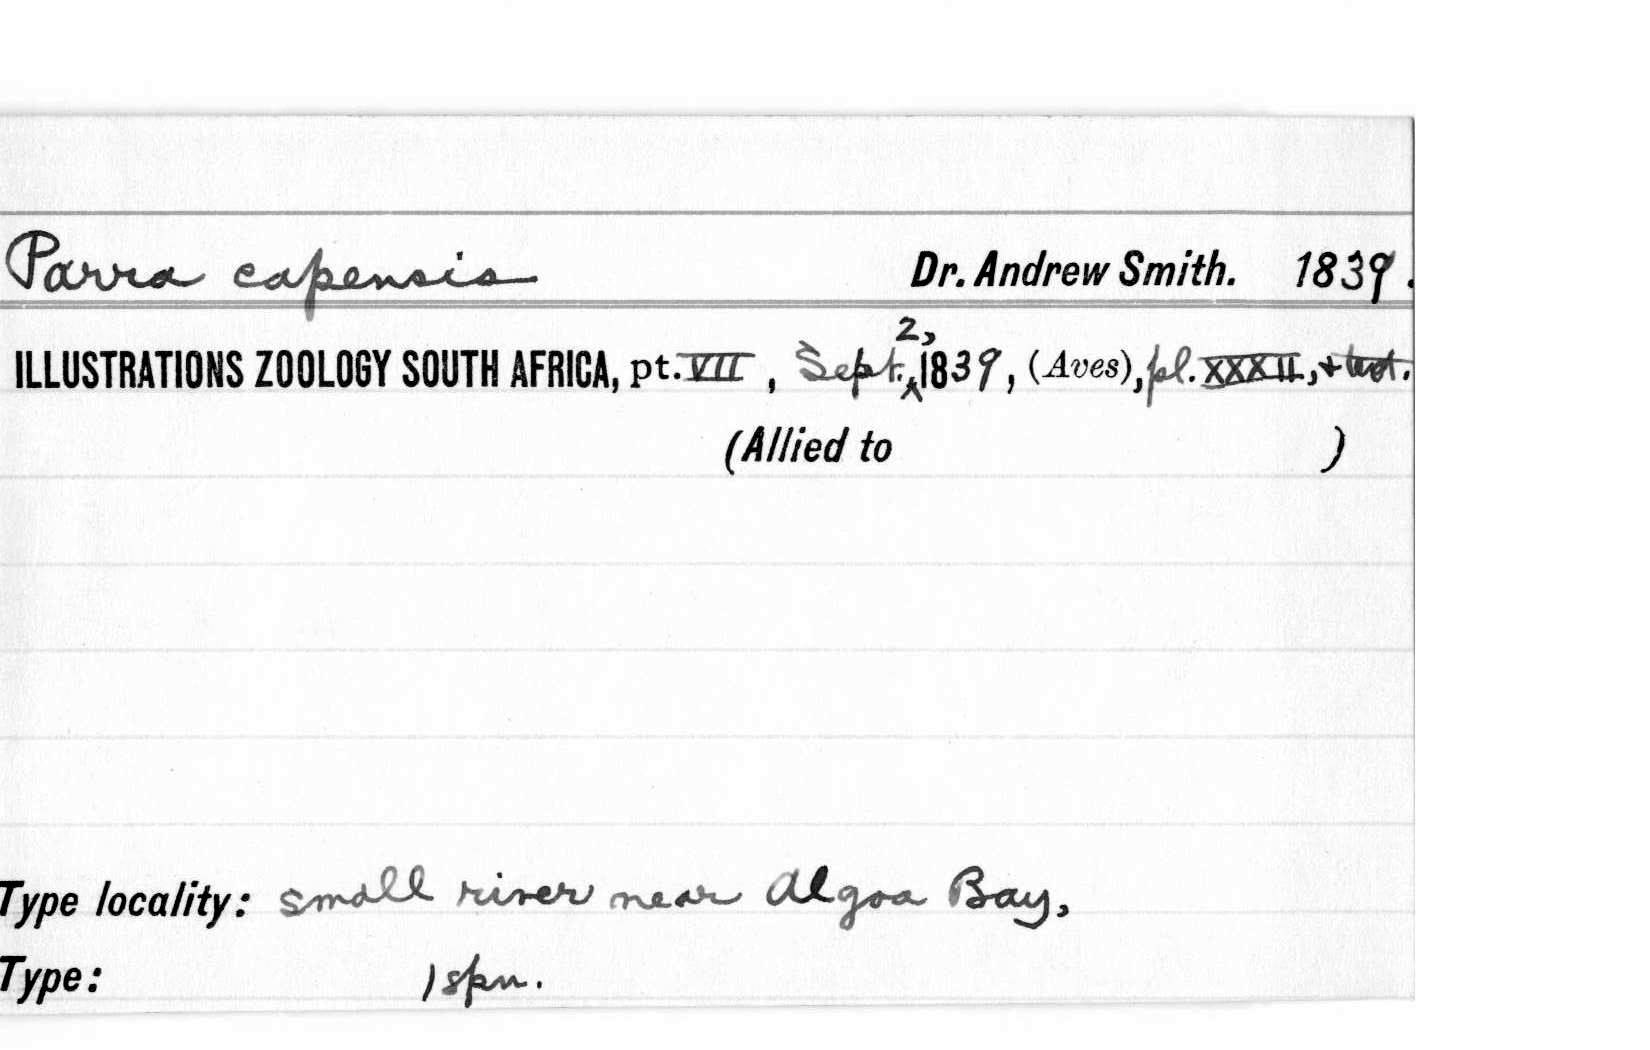 Parra capensis Dr. Andrew Smith. 1839.
ILLUSTRATIONS ZOOLOGY SOUTH AFRICA, pt. VII, Sept. 2, 1839, (Aves), pl. XXXII, + text.
(Allied to )
Type locality: small river near Algoa Bay,
Type: 1 spn.